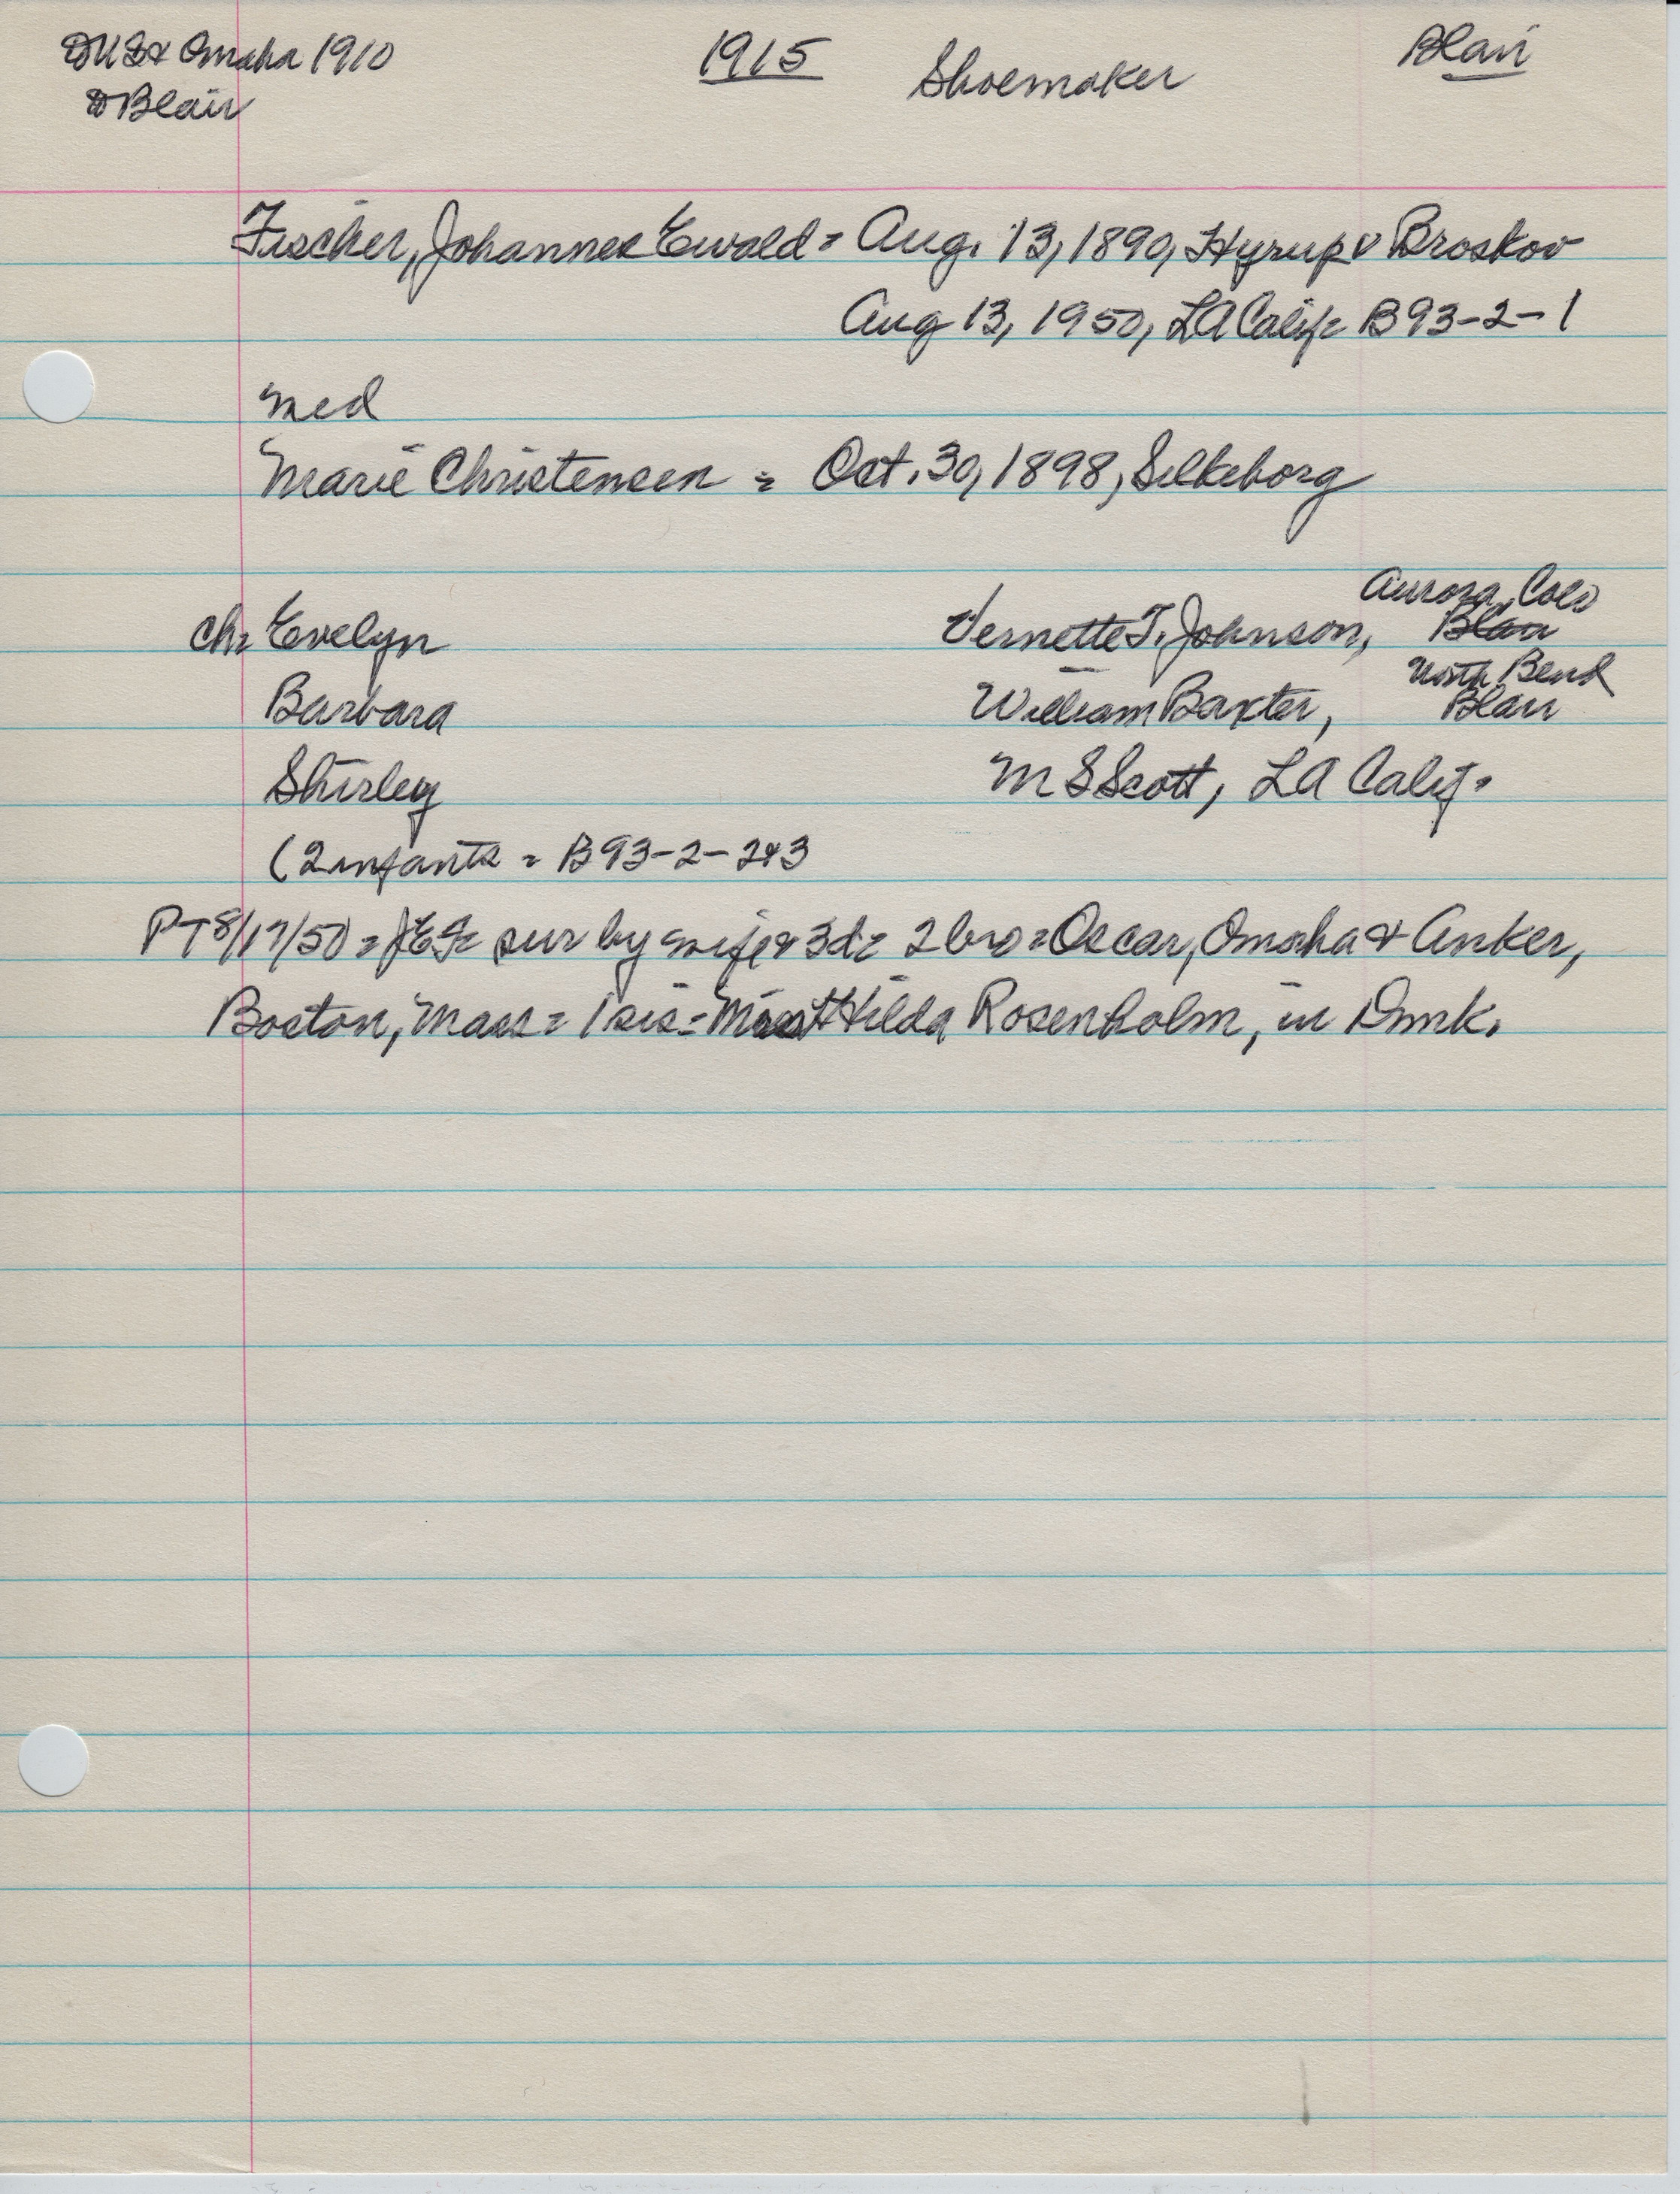 to US & Omaha 1910
1915
Shoemaker
Blair
to Blair
Fischer, Johannes Ewald = Aug. 13, 1890, Hyrup v Broskov
Aug 13, 1950, LA Calif = B93-2-1
med
Marie Christensen = Oct. 30, 1898, Silkeborg
Aurora, Colo
ch = Evelyn Vernette T. Johnson, Blair
North Bend
Barbara William Baxter, Blair
Shirley M S Scott, LA Calif.
(2 infants = B93-2-2&3
PT 8/17/50 = JEF = sur by wife & 3d = 2 bro = Oscar, Omaha & Anker,
Boston, Mass = 1 sis = Hilda Rosenholm, in Dmk.